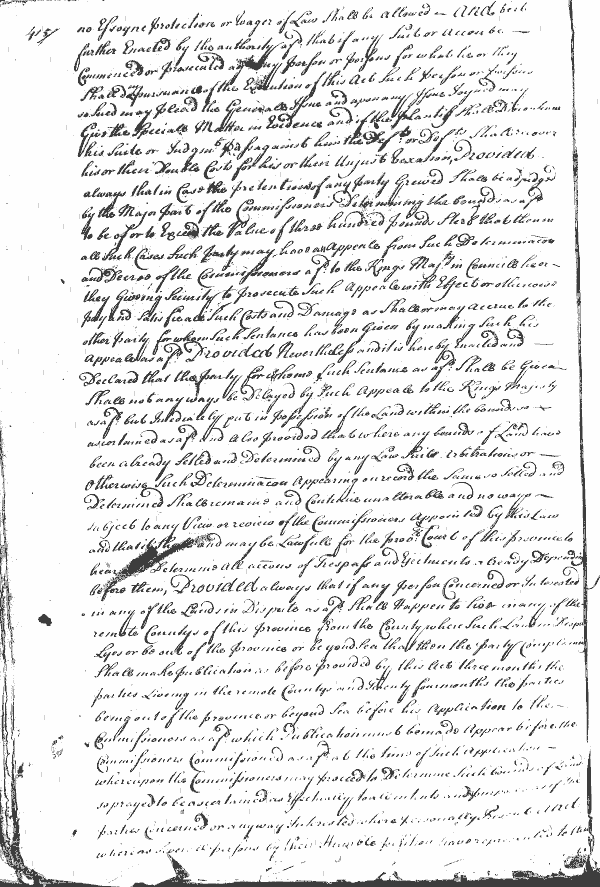 415
no Essoyne Protection or Wager of Law Shall be allowed – And be it
further Enacted by the authority afsd. that if any Suit or accon be –
Commenced or Prosecuted any person or persons for what he or they
Shall do pursuance of the Execution of this Act Such person or persons
so Sued may plead the Generall Issue and upon any Issue Joyned may
Give the Speciall Matter in Evidence and if the plantif Shall Discontinue
his Suite or Judgmt. pass against him the Deft. or Defts Shall recover
his or their Double Costs for his or their Unjust Vexation, Provided
always that in Case the pretentions of any party Greved Shall be adjudged
by the Major part of the Commissioners Determining the bounds as afsd
to be of or to Exceed the Value of three hundred pounds Sterl that then in
all Such Cases Such party may have an Appeale from Such Determinacon
and Decree of the Commissioners afsd. to the Kings Majty in Councill he or –
they Giveing Security to prosecute Such Appeale with Effect or otherwise
pay and Satisfie all Such Costs and Damage as Shall or may accrue to the
other party for whom Such Sentance has been Given by making Such his
Appeale as afsd. Provided Nevertheless and it is hereby Enacted and –
Declared that the party for whome Such Sentance as afsd. Shall be Given
Shall not any ways be Delayed by Such Appeale to the Kings Majesty
as afsd. but Imediately put in possession of the Land within the bounds so –
ascertained as afsd. and Also provided that where any bounds of Land have
been already Setled and Determined by any Law Suite Arbitrations or –
Otherwise Such Determinacon Appearing on record the Same so Setled and
Determined Shall remaine and Continue unalterable and no ways –
subject to any View or review of the Commissioners Appointed by this Law
and that it and may be Lawfull for the prov: Court of this province to
hear Determine all accons of Trespass and Ejectments already Depending
before them, Provided always that if any person Concerned or Interested
in any of the Lands in Dispute as afsd. Shall Happen to live in any of the
remote Countys of this Province from the County where Such Land in
Lyes or be out of the Province or beyond Sea that then the party
Shall make publication as before provided by this Act three months the
parties Liveing in the remote Countys and Twenty four months the parties
being out of the province or beyond Sea before his Application to the –
Commissioners as afsd. which Publication must be made Appear before the
Commissioners Commissioned as afsd. at the time of Such Application –
whereupon the Commissioners may proceed to Determine Such bounds of Land
so prayed to be ascertained as Effectually to all intents and purposes if the
parties Concerned or any way Interested where personally Present And
whereas Severall persons by their Humble petition have represented to this